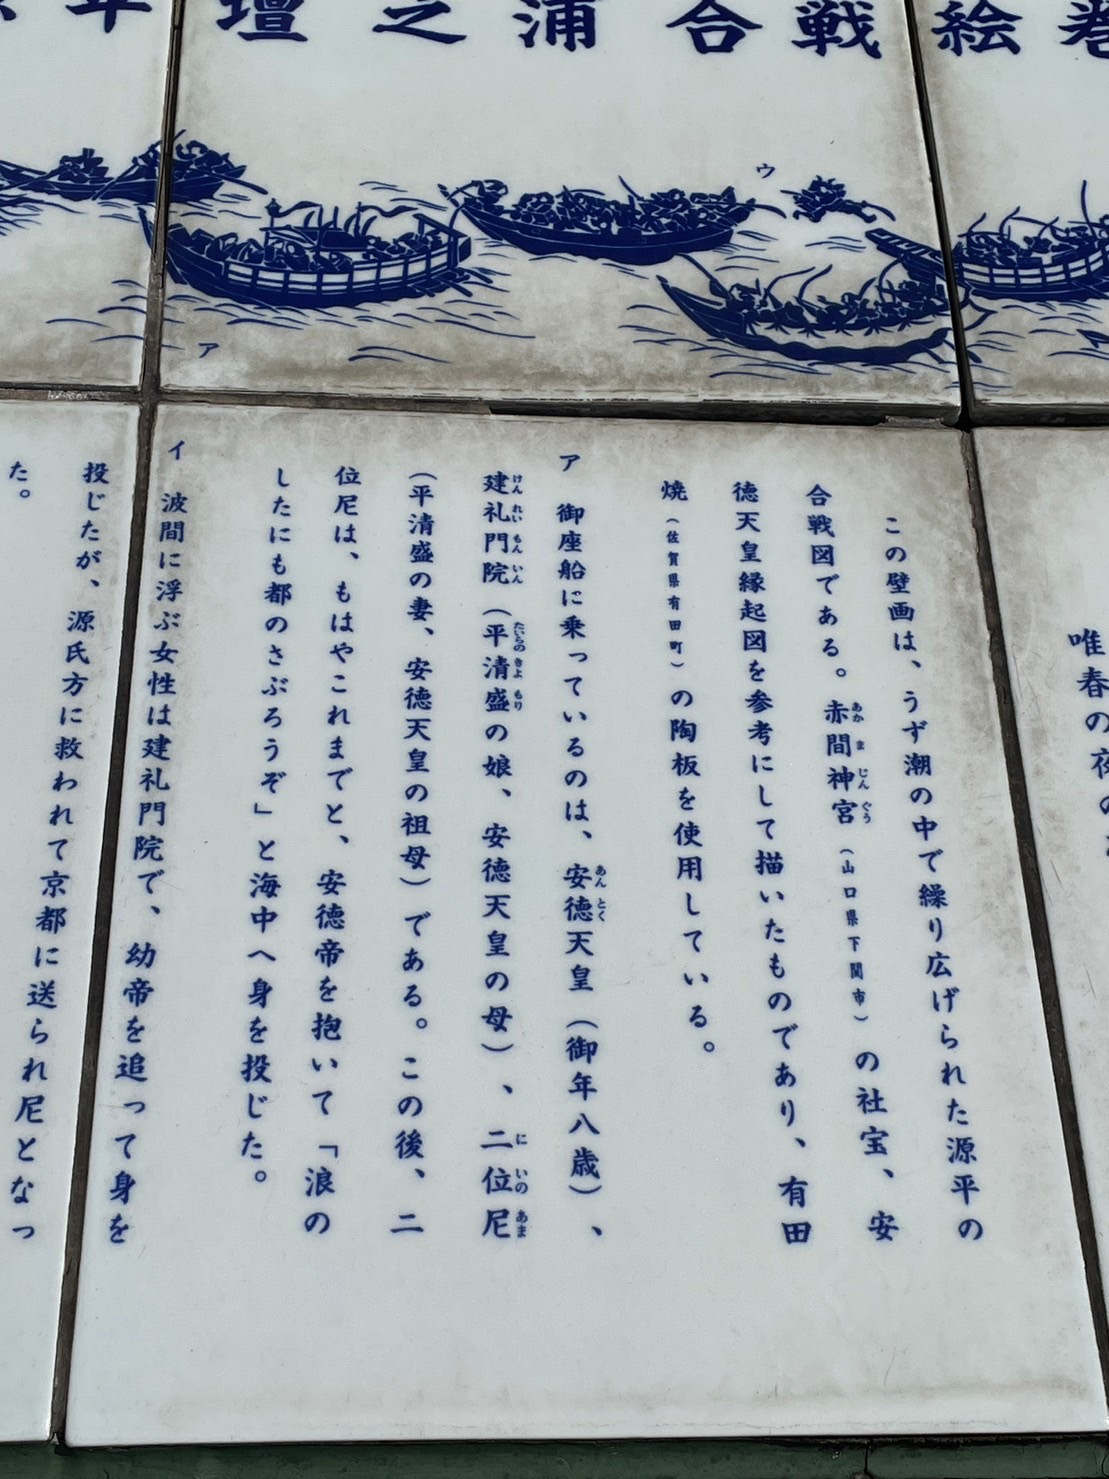 壇之浦合戦絵巻
ウ
ア
唯春の夜の
この壁画は、うず潮の中で繰り広げられた源平の
合戦図である。赤間神宮（山口県下関市）の社宝、安
徳天皇縁起図を参考にして描いたものであり、有田
焼（佐賀県有田町）の陶板を使用している。
ア 御座船に乗っているのは、安徳天皇（御年八歳）、
建礼門院（平清盛の娘、安徳天皇の母）、二位尼
（平清盛の妻、安徳天皇の祖母）である。この後、二
位尼は、もはやこれまでと、安徳帝を抱いて「浪の
したにも都のさぶろうぞ」と海中へ身を投じた。
イ 波間に浮ぶ女性は建礼門院で、幼帝を追って身を
投じたが、源氏方に救われて京都に送られ尼となっ
た。